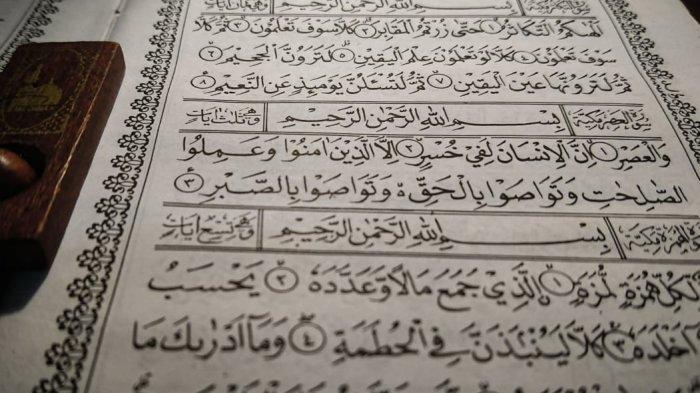 بِسْمِ اللهِ الرَّحْمٰنِ الرَّحِيْمِ
اَلْهٰىكُمُ التَّكَاثُرُۙ ١ حَتّٰى زُرْتُمُ الْمَقَابِرَۗ ٢ كَلَّا سَوْفَ تَعْلَمُوْنَۙ ٣ ثُمَّ كَلَّا
سَوْفَ تَعْلَمُوْنَۗ ٤ كَلَّا لَوْ تَعْلَمُوْنَ عِلْمَ الْيَقِيْنِۗ ٥ لَتَرَوُنَّ الْجَحِيْمَۙ ٦
ثُمَّ لَتَرَوُنَّهَا عَيْنَ الْيَقِيْنِۙ ٧ ثُمَّ لَتُسْـَٔلُنَّ يَوْمَىِٕذٍ عَنِ النَّعِيْمِ ٨
بِسْمِ اللهِ الرَّحْمٰنِ الرَّحِيْمِ وَهِيَ ثَلٰثُ اٰيَاتٍ
وَالْعَصْرِۙ ١ اِنَّ الْاِنْسَانَ لَفِيْ خُسْرٍۙ ٢ اِلَّا الَّذِيْنَ اٰمَنُوْا وَعَمِلُوا
الصّٰلِحٰتِ وَتَوَاصَوْا بِالْحَقِّ ەۙ وَتَوَاصَوْا بِالصَّبْرِ ٣
بِسْمِ اللهِ الرَّحْمٰنِ الرَّحِيْمِ وَهِيَ تِسْعُ اٰيَاتٍ
لِكُلِّ هُمَزَةٍ لُّمَزَةٍۙ ١ اِلَّذِيْ جَمَعَ مَالًا وَّعَدَّدَهٗۙ ٢ يَحْسَبُ
اَخْلَدَهٗۚ ٣ كَلَّا لَيُنْۢبَذَنَّ فِى الْحُطَمَةِۖ ٤ وَمَآ اَدْرٰىكَ مَا